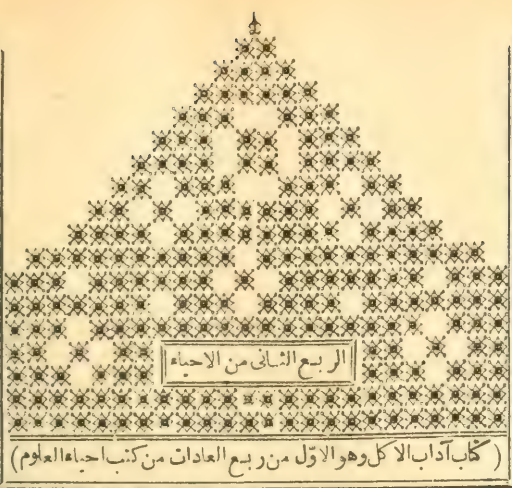 الربع الثانى من الاحياء
( كتاب آداب الاكل وهو الاوّل من ربع العادات من كتب احياء العلوم )